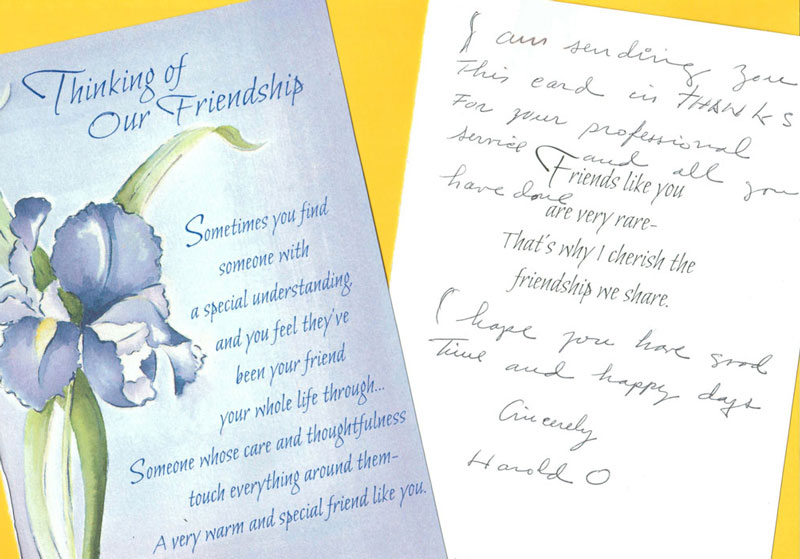 Thinking of
Our Friendship
Sometimes you find
someone with
a special understanding,
and you feel they've
been your friend
your whole life through...
Someone whose care and thoughtfulness
touch everything around them–
A very warm and special friend like you.
I am sending you
This card in THANKS
For your professional
service and all you
have done
Friends like you
are very rare–
That's why I cherish the
friendship we share.
I hope you have good
Time and happy days
Sincerely
Harold O